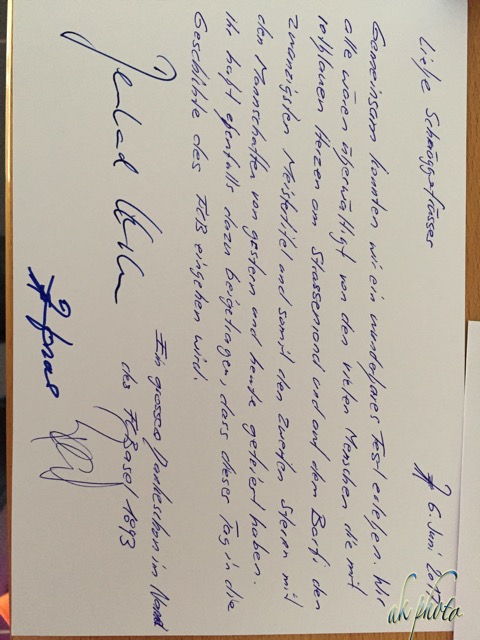 6. Juni 2015
Liebe Schnäggefrässer
Gemeinsam konnten wir ein wunderbares Fest erleben. Wir
alle waren überwältigt von den vielen Menschen die mit
rotblauen Herzen am Strassenrand und auf dem Barfi den
zwanzigsten Meistertitel und somit den zweiten Stern mit
den Mannschaften von gestern und heute gefeiert haben.
Ihr habt ebenfalls dazu beigetragen, dass dieser Tag in die
Geschichte des FCB eingehen wird.
Ein grosses Dankeschön im Namen
des FC Basel 1893
ak photo